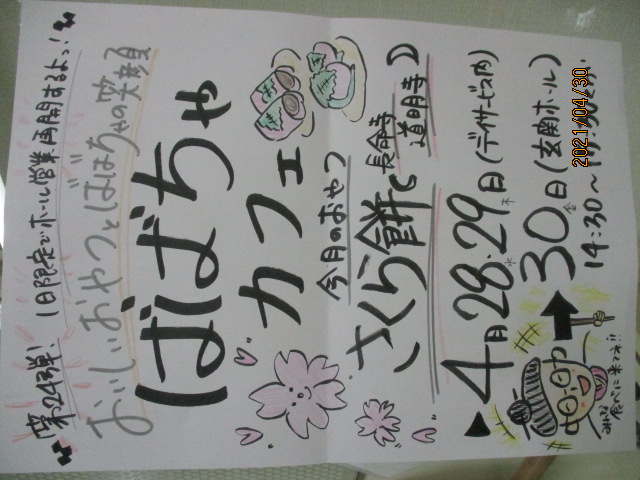 第24弾! 1日限定でホール営業再開するよっ!
おいしいおやつとばばちゃの笑顔
ばばちゃ
カフェ
今月のおやつ
さくら餅(長命寺
道明寺)
▶4月28水・29木日(デイサービス内)
➡30金日(玄関ホール)
14:30~15:30
みんな
食べに来てネ!!
2021/04/30